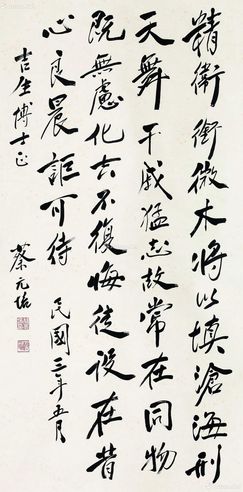 精衛銜微木將以填滄海刑
天舞干戚猛志故常在同物
既無慮化去不復悔徒設在昔
心良晨詎可待 民國三年五月
吉生博士正 蔡元培